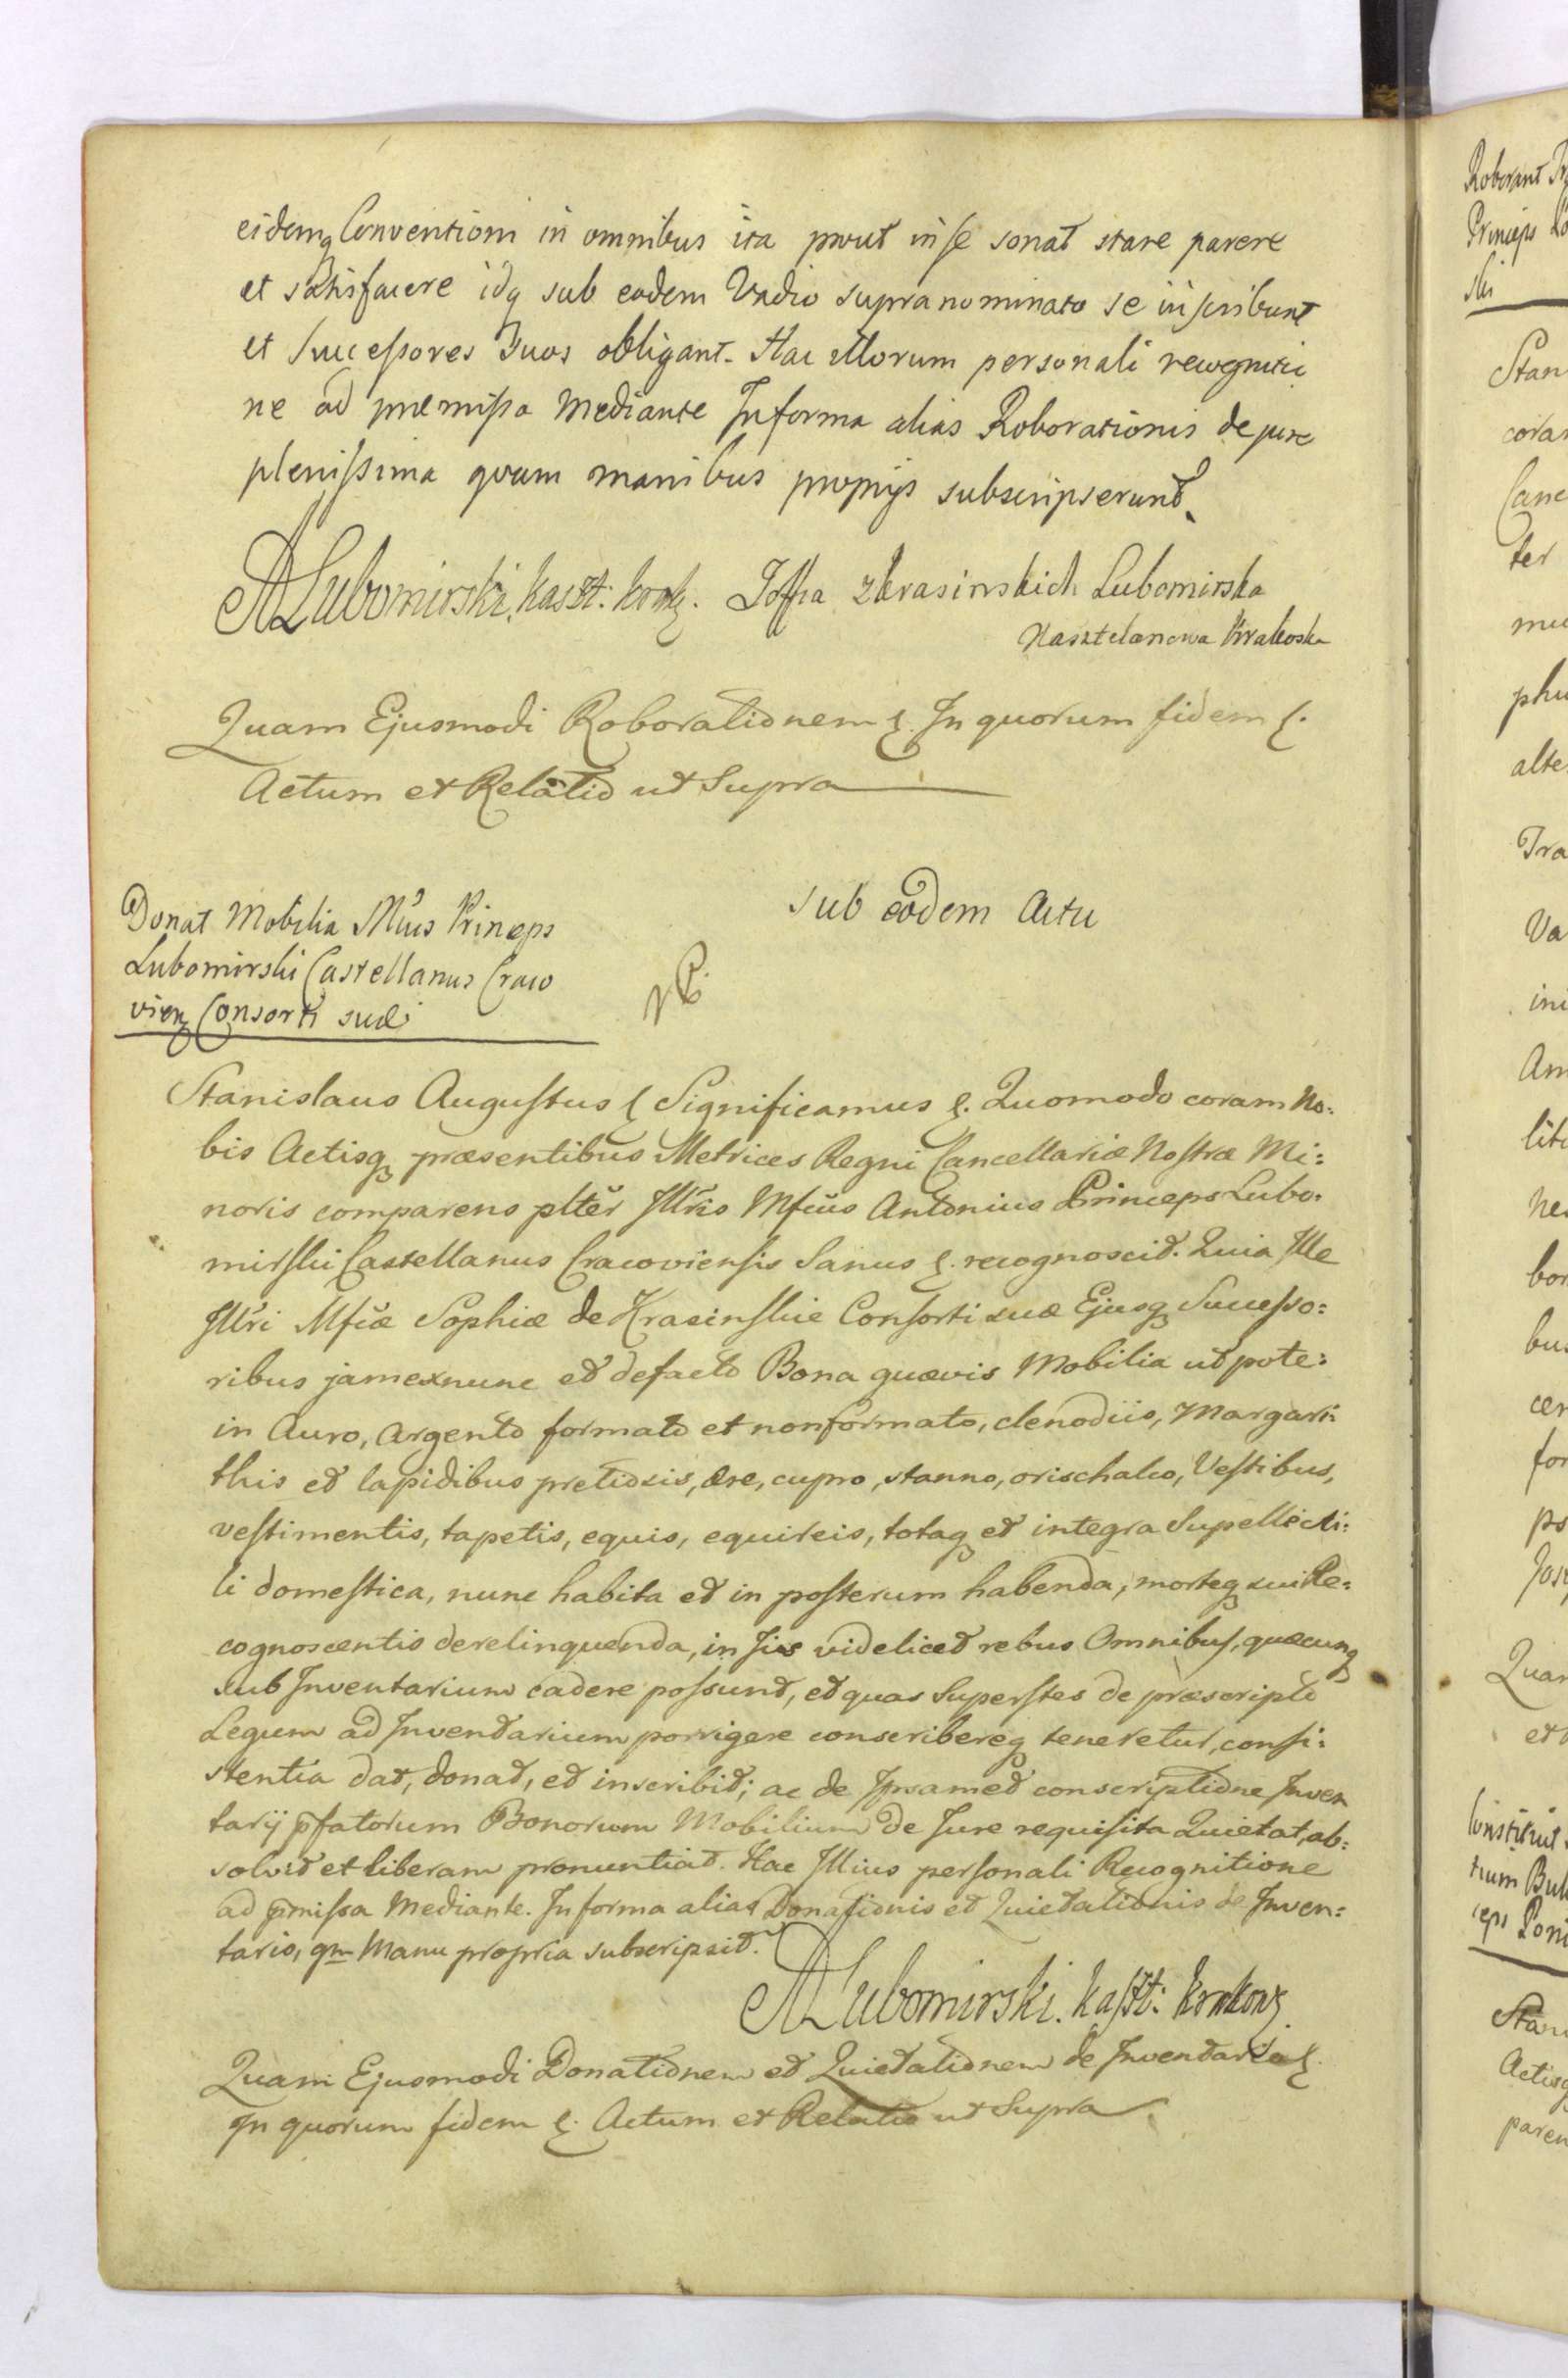 eidemq Conventioni in omnibus ita prout in se sonat stare parere
et satisfacere idq sub eodem Vadio supranominato se inscribunt
et Successores Suos obligant. Hac illorum personali recognitio
ne ad præmissa Mediante Informa alias Roborationis de jure
plenissima qvam manibus proprijs subscripserunt
ALubomirski, kaszt: krak. Zoffia z Krasinskich Lubomirska
Kasztelanowa Krakoska
Quam Ejusmodi Roborationem &. In quorum fidem &.
Actum et Relatio ut Supra
Sub eodem Actu
Donat Mobilia Illius Princeps
Lubomirski Castellanus Craco
vien Consorti suæ
Stanislaus Augustus & Significamus &. Quomodo coram No:
bis Actisq præsentibus Metrices Regni Cancellariæ Nostræ Mi:
noris comparens plter Illris Mfcus Antonius Princeps Lubo:
mirski Castellanus Cracoviensis Sanus &. recognoscit. Quia Ille
Illri Mfcæ Sophiæ de Krasinskie Consorti suæ Ejusq Successo:
ribus jam exnunc et defacto Bona quævis Mobilia ut pote:
in Auro, Argento formato et nonformato, clenodiis, Margari:
this et lapidibus pretiosis, ære, cupro, stanno, orischalco, Vestibus,
vestimentis, tapetis, equis, equireis, totaq et integra Supellecti:
li domestica, nunc habita et in posterum habenda, morteq sui Re:
cognoscentis derelinquenda, in Jis videlicet rebus Omnibus, quæcunq
sub Inventarium cadere possunt, et quas Superstes de præscripto
Legum ad Inventarium porrigere conscribereq teneretur, consi:
stentia dat, donat, et inscribit; ac de Ipsamet conscriptione Inven
tarij pfatorum Bonorum Mobilium de Jure requisita Quietat, ab:
solvit et liberam pronuntiat. Hac Illius personali Recognitione
ad pmissa Mediante. Informa alias Donationis et Quietationis de Inven:
tario, qm Manu propria subscripsit.
ALubomirski. kaszt: krakows
Quam Ejusmodi Donationem et Quietationem de Inventario &.
In quorum fidem &. Actum et Relatio ut Supra